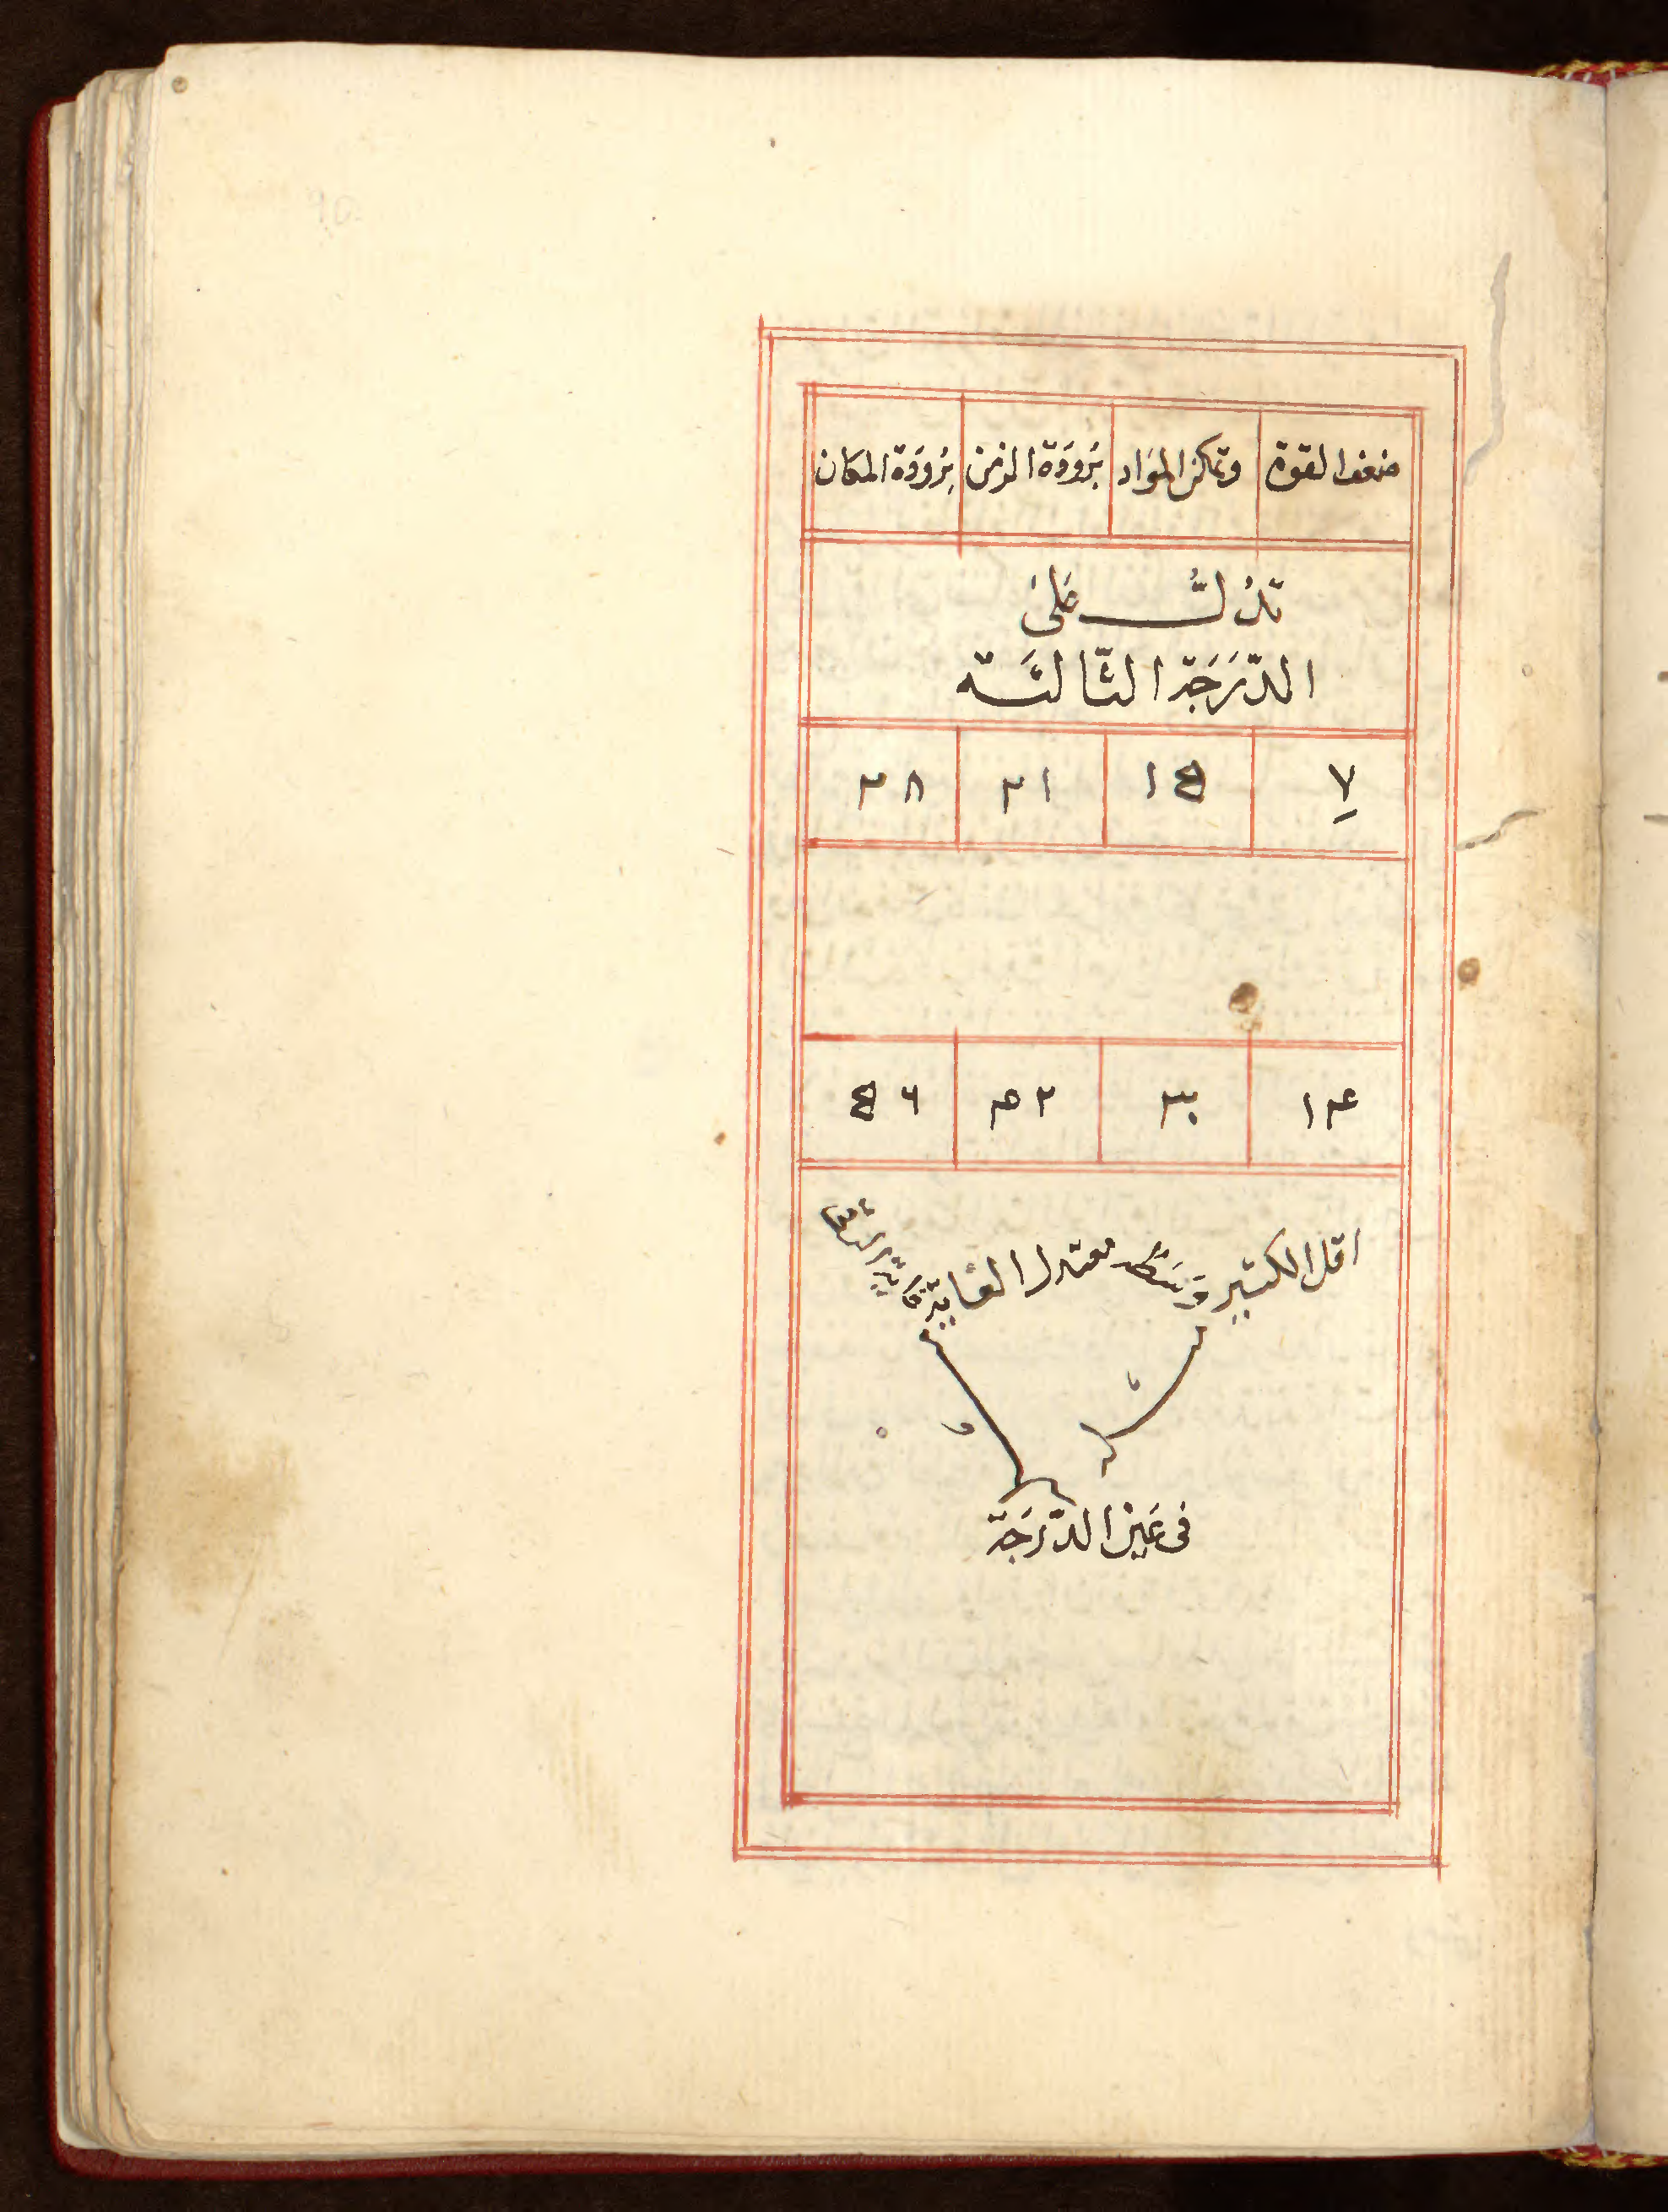 ضعف القوة وتمكن المواد بَرودَة الزمن بَرُودَة المكان
تَدُلُّ عَلىَ
الدّرَجَة الثّالثَة
٧ ١٥ ٢١ ٢٨
١٤ ٣٠ ٤٢ ٥٦
اقل الكثير وَسَط معتدل الغاية غاية
فى عَين الدّرَجَة